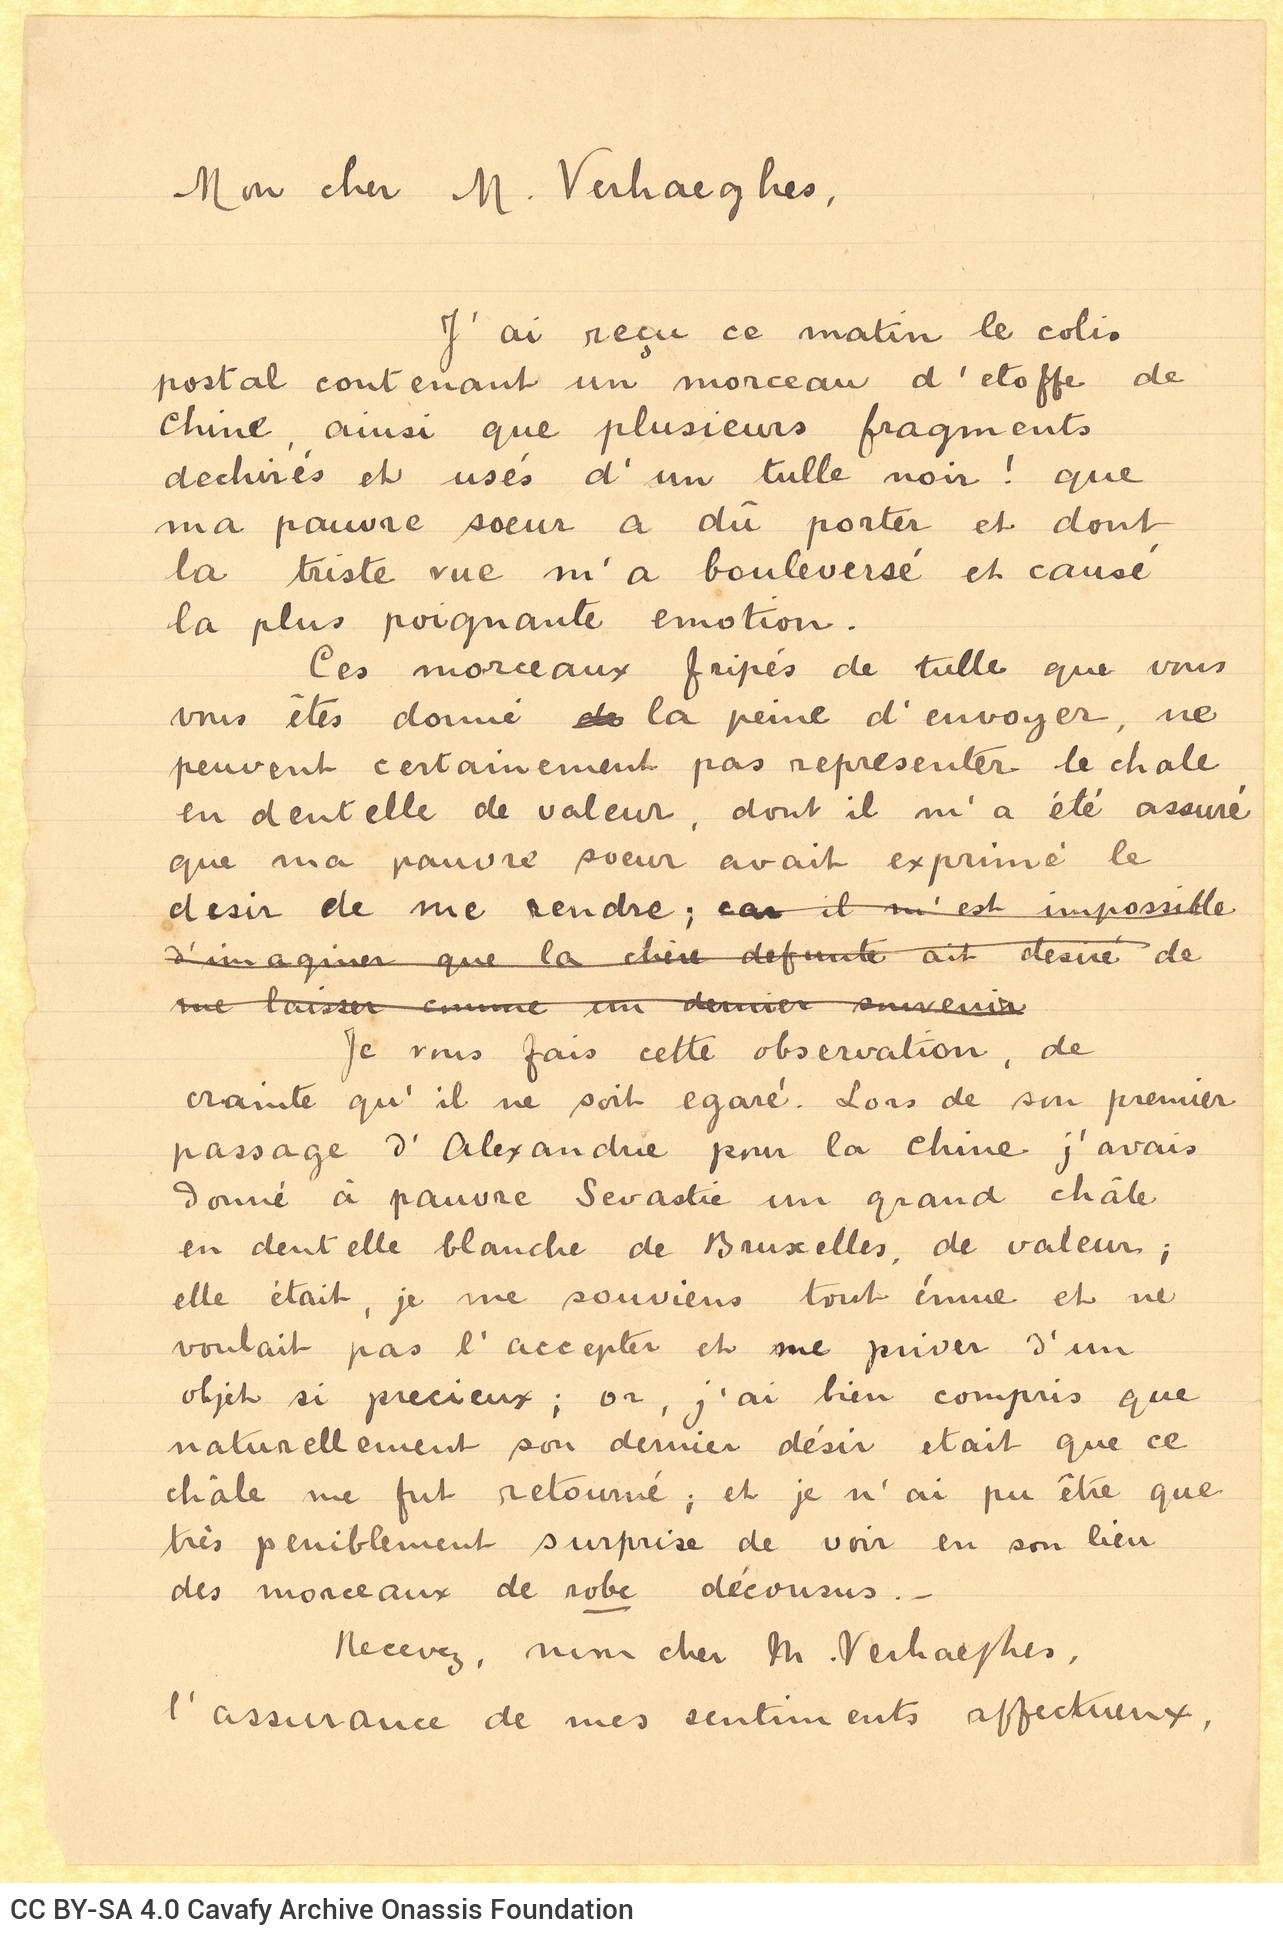 Mon cher M. Verhaeghes,
J'ai reçu ce matin le colis
postal contenant un morceau d'etoffe de
Chine, ainsi que plusieurs fragments
dechirés et usés d'un tulle noir! que
ma pauvre soeur a dû porter et dont
la triste vue m'a bouleversé et causé
la plus poignante emotion.
Ces morceaux fripés de tulle que vous
vous êtes donné de la peine d'envoyer, ne
peuvent certainement pas representer le chale
en dentelle de valeur, dont il m'a été assuré
que ma pauvre soeur avait exprimé le
desir de me rendre; car il m'est impossible
d'imaginer que la chère defunte ait desiré de
me laisser comme un dernier souvenir
Je vous fais cette observation, de
crainte qu'il ne soit egaré. Lors de son premier
passage d'Alexandrie pour la Chine j'avais
donné à pauvre Sevastie un grand châle
en dentelle blanche de Bruxelles, de valeur;
elle était, je me souviens tout émue et ne
voulait pas l'accepter et me priver d'un
objet si precieux; or, j'ai bien compris que
naturellement son dernier désir etait que ce
châle me fut retourné; et je n'ai pu être que
très peniblement surprise de voir en son lieu
des morceaux de robe décousus.-
Recevez, mon cher M. Verhaeghes,
l'assurance de mes sentiments affectueux,
CC BY-SA 4.0 Cavafy Archive Onassis Foundation